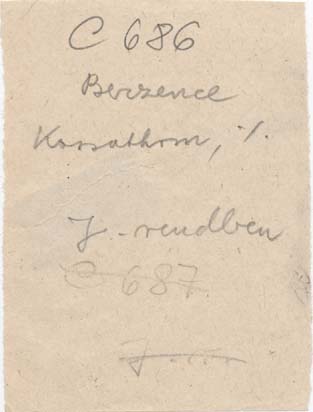 C 686
Berzence
Kossuth rom, %.
J-rendben
C 687
J.